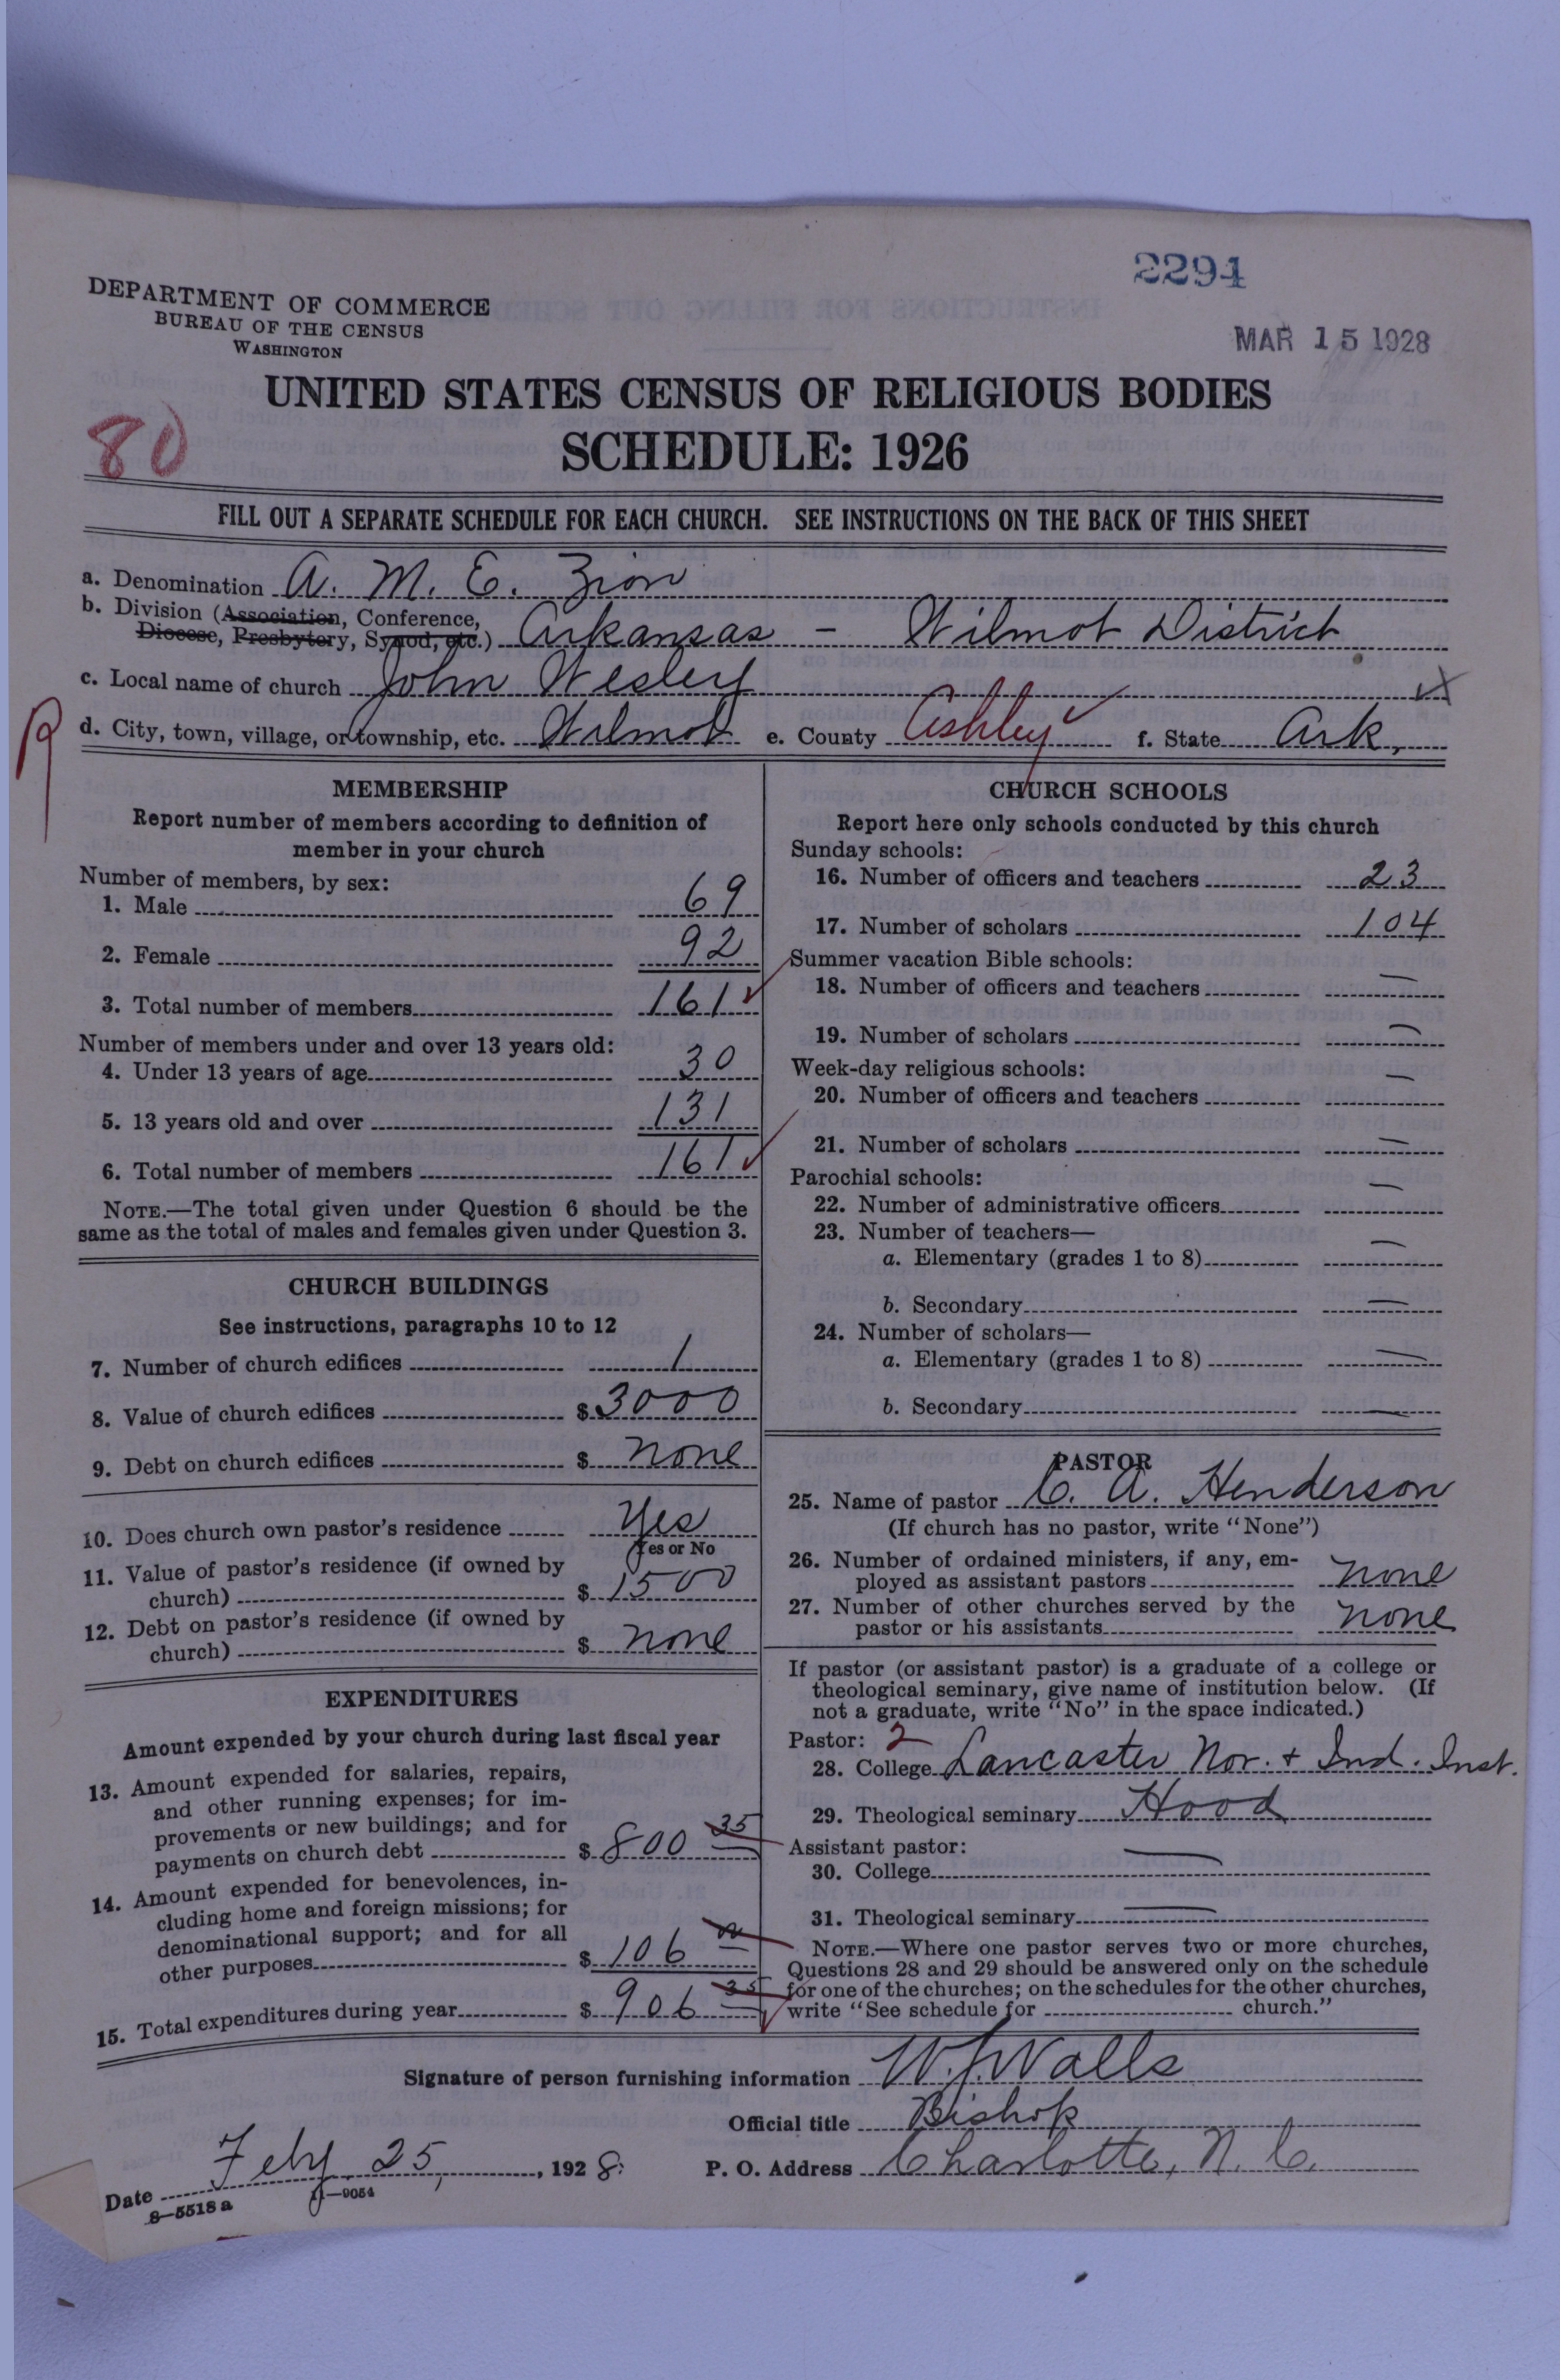 2294
MAR 15 1928
DEPARTMENT OF COMMERCE
BUREAU OF THE CENSUS
WASHINGTON
UNITED STATES CENSUS OF RELIGIOUS BODIES
80
SCHEDULE: 1926
FILL OUT A SEPARATE SCHEDULE FOR EACH CHURCH. SEE INSTRUCTIONS ON THE BACK OF THIS SHEET
a. Denomination A. M. E. Zion
b. Division (Association, Conference,
Diocese, Presbytery, Synod, etc.) Arkansas - Wilmot District
c. Local name of church John Wesley
R
d. City, town, village, or township, etc. Wilmot e. County Ashley f. State Ark.
MEMBERSHIP
Report number of members according to definition of
member in your church
Number of members, by sex:
1. Male 69
2. Female 92
3. Total number of members 161
Number of members under and over 13 years old:
4. Under 13 years of age 30
5. 13 years old and over 131
6. Total number of members 161
NOTE.—The total given under Question 6 should be the
same as the total of males and females given under Question 3.
CHURCH BUILDINGS
See instructions, paragraphs 10 to 12
7. Number of church edifices 1
8. Value of church edifices $ 3000
9. Debt on church edifices $ none
10. Does church own pastor's residence Yes
Yes or No
11. Value of pastor's residence (if owned by
church) $ 1500
12. Debt on pastor's residence (if owned by
church) $ none
EXPENDITURES
Amount expended by your church during last fiscal year
13. Amount expended for salaries, repairs,
and other running expenses; for im-
provements or new buildings; and for
payments on church debt $ 800 35
14. Amount expended for benevolences, in-
cluding home and foreign missions; for
denominational support; and for all
other purposes $ 106
15. Total expenditures during year $ 906 35
CHURCH SCHOOLS
Report here only schools conducted by this church
Sunday schools:
16. Number of officers and teachers 23
17. Number of scholars 104
Summer vacation Bible schools:
18. Number of officers and teachers —
19. Number of scholars —
Week-day religious schools:
20. Number of officers and teachers —
21. Number of scholars —
Parochial schools:
22. Number of administrative officers —
23. Number of teachers—
a. Elementary (grades 1 to 8) —
b. Secondary —
24. Number of scholars—
a. Elementary (grades 1 to 8) —
b. Secondary —
PASTOR
25. Name of pastor C. A. Henderson
(If church has no pastor, write "None")
26. Number of ordained ministers, if any, em-
ployed as assistant pastors none
27. Number of other churches served by the
pastor or his assistants none
If pastor (or assistant pastor) is a graduate of a college or
theological seminary, give name of institution below. (If
not a graduate, write "No" in the space indicated.)
Pastor: 2
28. College Lancaster Nor. + Ind. Inst.
29. Theological seminary Hood
Assistant pastor:
30. College —
31. Theological seminary —
NOTE.—Where one pastor serves two or more churches,
Questions 28 and 29 should be answered only on the schedule
for one of the churches; on the schedules for the other churches,
write "See schedule for church."
Signature of person furnishing information W. J. Walls
Official title Bishop
Date Feby 25, 1928. P. O. Address Charlotte, N. C.
8—5518a 11—9054